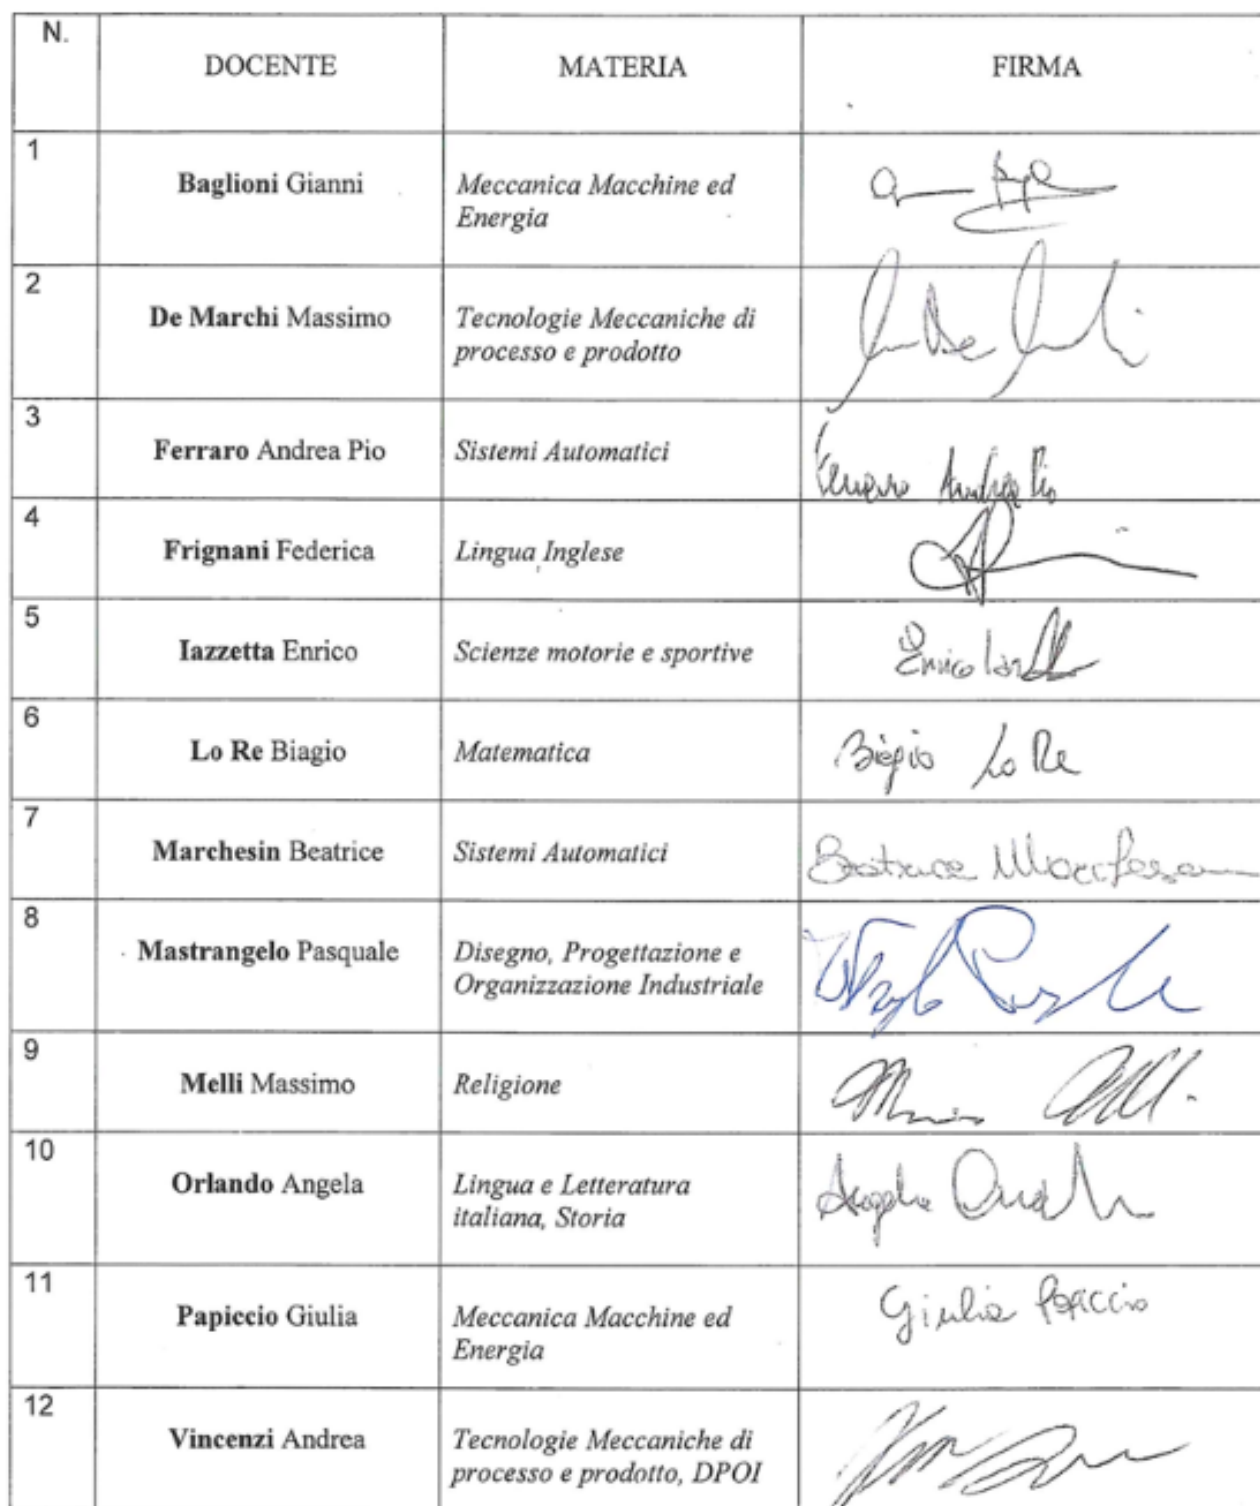 N. DOCENTE MATERIA FIRMA
1 Baglioni Gianni Meccanica Macchine ed
Energia
2 De Marchi Massimo Tecnologie Meccaniche di
processo e prodotto
3 Ferraro Andrea Pio Sistemi Automatici Ferraro Andrea Pio
4 Frignani Federica Lingua Inglese
5 Iazzetta Enrico Scienze motorie e sportive Enrico
6 Lo Re Biagio Matematica Biagio Lo Re
7 Marchesin Beatrice Sistemi Automatici Beatrice Marchesin
8 Mastrangelo Pasquale Disegno, Progettazione e
Organizzazione Industriale
9 Melli Massimo Religione
10 Orlando Angela Lingua e Letteratura Angela
italiana, Storia
11 Papiccio Giulia Meccanica Macchine ed Giulia Papiccio
Energia
12 Vincenzi Andrea Tecnologie Meccaniche di
processo e prodotto, DPOI